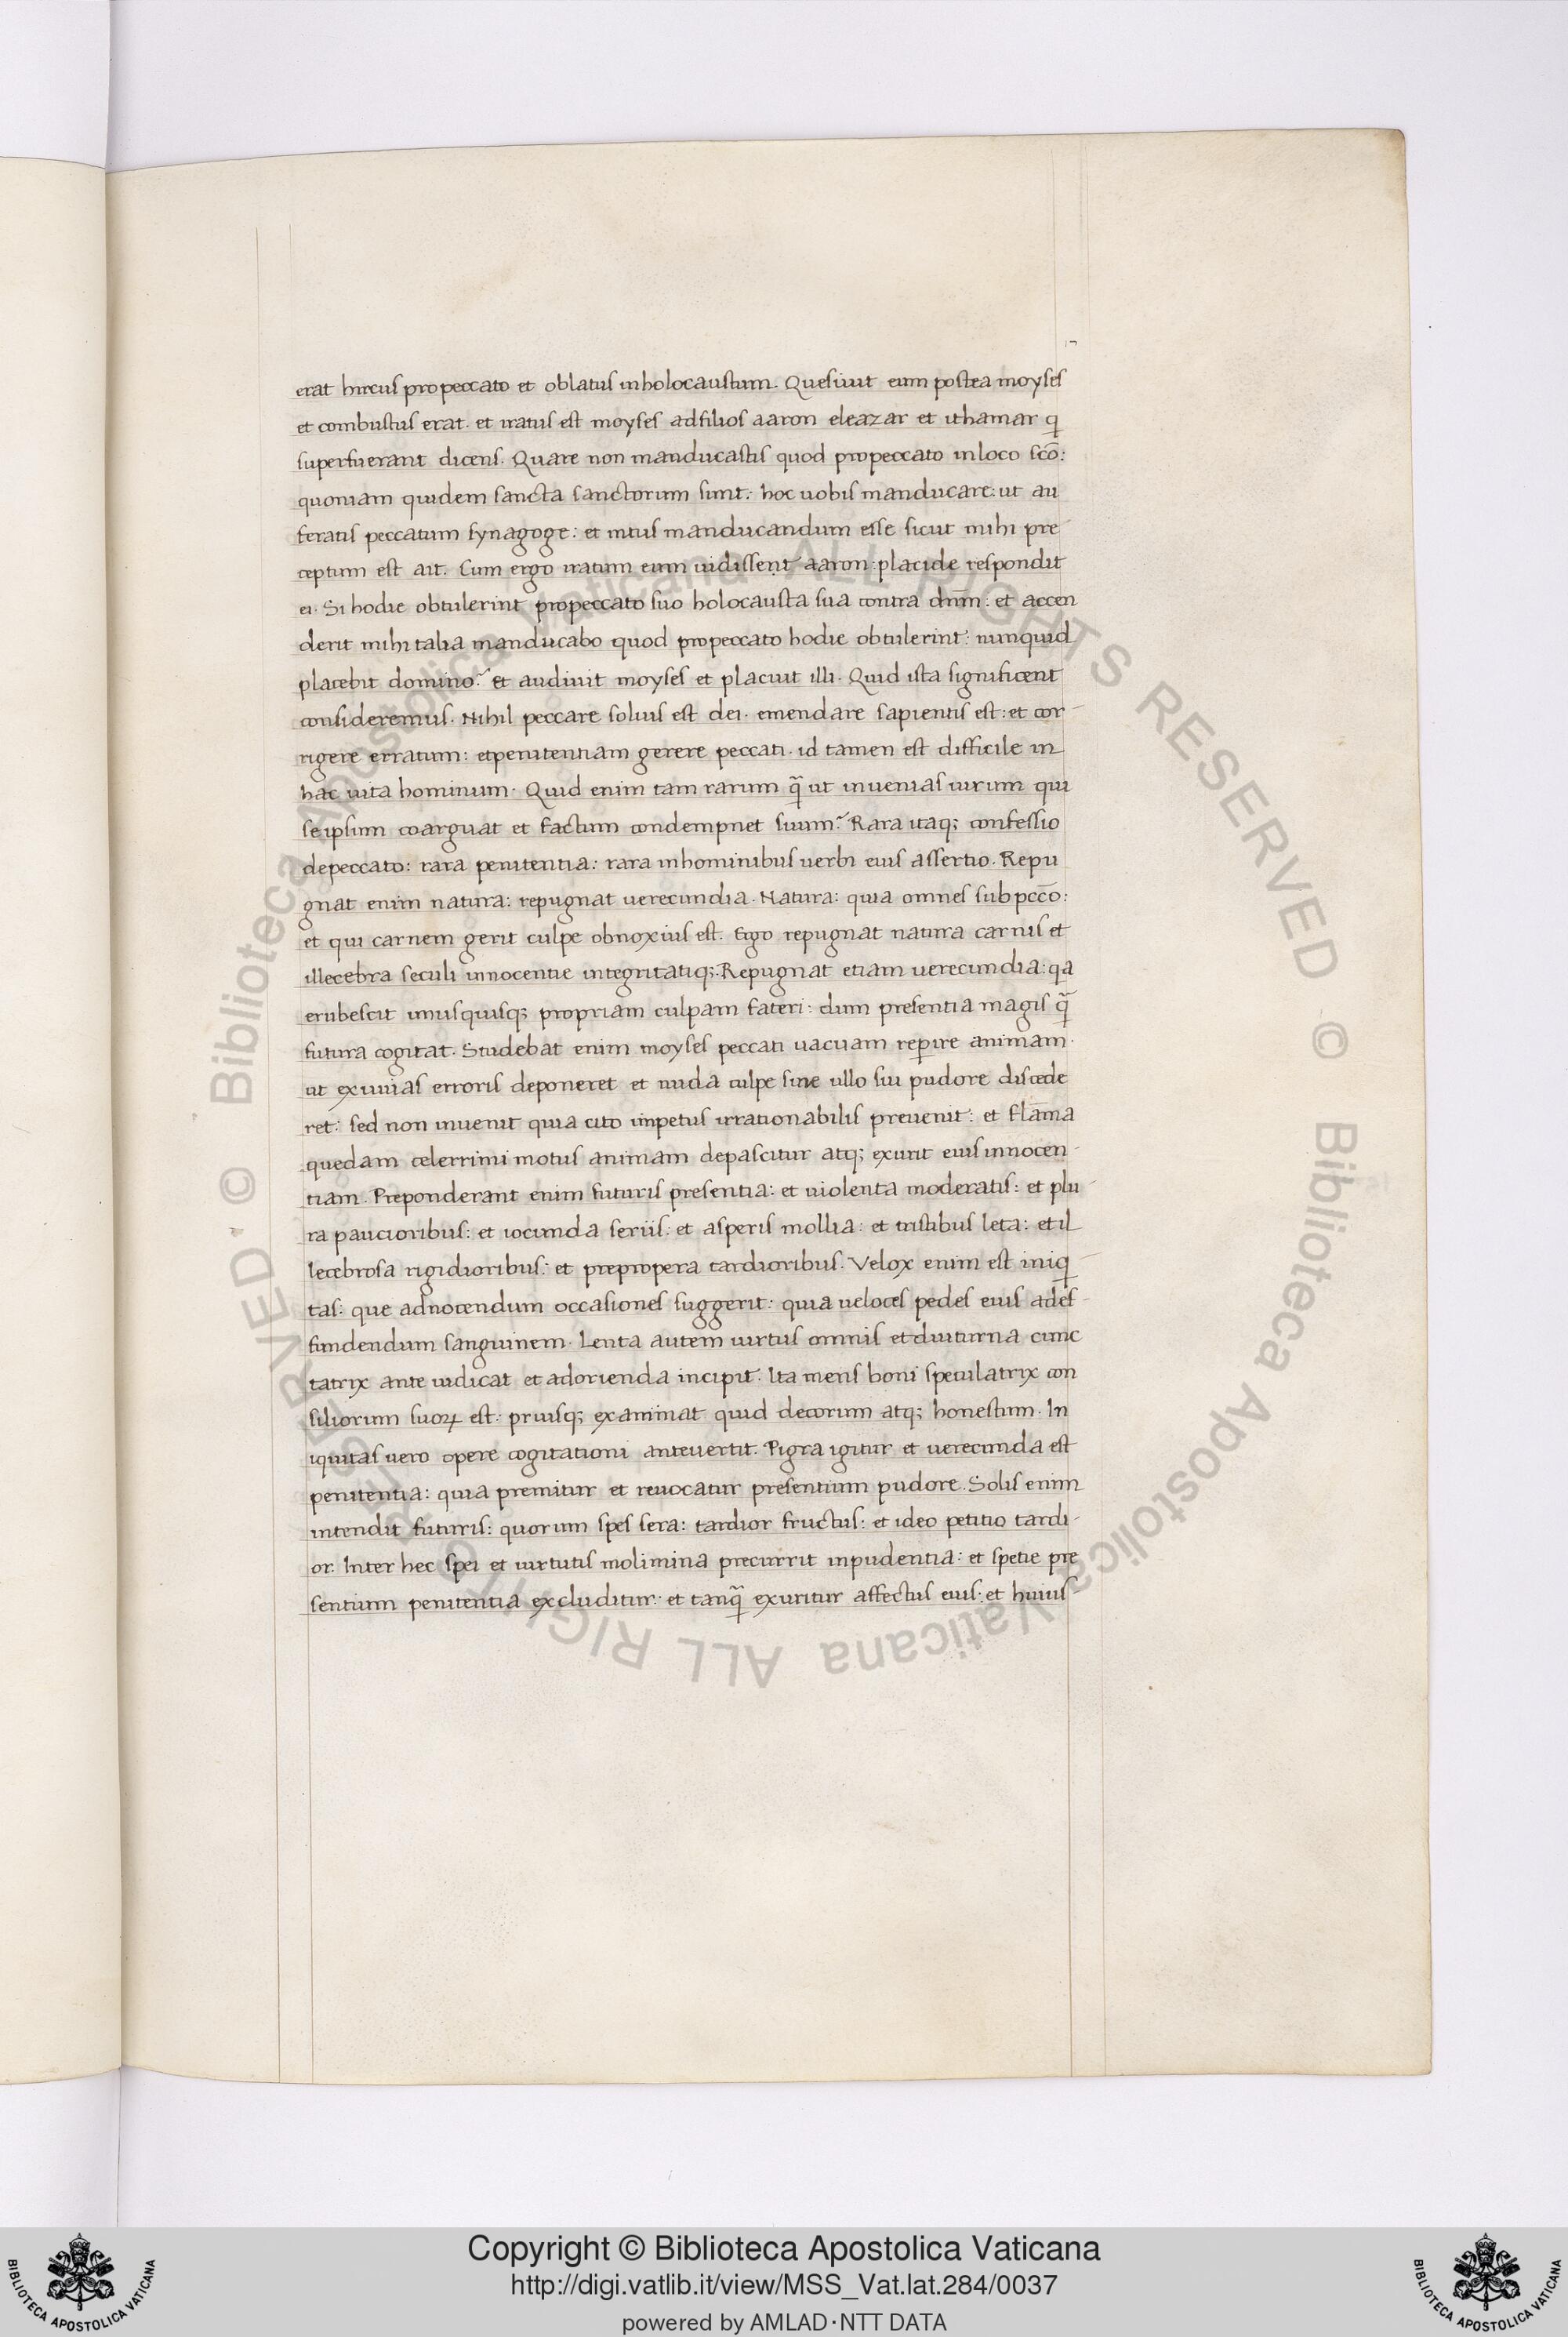 erat hircus pro peccato et oblatus in holocaustum. Quesiuit eum postea moyses
et combustus erat. et iratus est moyses ad filios aaron eleazar et ithamar q
superfuerant dicens. Quare non manducastis quod pro peccato in loco scō:
quoniam quidem sancta sanctorum sunt: hoc uobis manducare: ut au
feratis peccatum synagoge: et intus manducandum esse sicut mihi pre
ceptum est ait. Cum ergo iratum eum uidissent aaron: placide respondit
ei. Si hodie obtulerint pro peccato suo holocausta sua contra dnm̄: et accen
derit mihi talia manducabo quod pro peccato hodie obtulerint: nunquid
placebit domino? et audiuit moyses et placuit illi. Quid ista significent
consideremus. Nihil peccare solius est dei. emendare sapientis est: et cor-
rigere erratum: et penitentiam gerere peccati. id tamen est difficile in
hac uita hominum. Quid enim tam rarum q̄ ut inuenias uirum qui
se ipsum coarguat et factum condempnet suum? Rara itaq; confessio
de peccato: rara penitentia: rara in hominibus uerbi eius assertio. Repu
gnat enim natura: repugnat uerecundia. Natura: quia omnes sub pccō:
et qui carnem gerit culpe obnoxius est. Ergo repugnat natura carnis et
illecebra seculi innocentie integritatiq;. Repugnat etiam uerecundia: qa
erubescit unusquisq; propriam culpam fateri: dum presentia magis q̄
futura cogitat. Studebat enim moyses peccati uacuam reperire animam.
ut exuuias erroris deponeret et nuda culpe sine ullo sui pudore discede
ret: sed non inuenit quia cito inpetus irrationabilis preuenit: et flāma
quedam celerrimi motus animam depascitur atq; exurit eius innocen-
tiam. Preponderant enim futuris presentia: et uiolenta moderatis: et plu-
ra paucioribus: et iocunda seriis: et asperis mollia: et tristibus leta: et il
lecebrosa rigidioribus: et prepropera tardioribus. Velox enim est iniq-
tas: que ad nocendum occasiones suggerit: quia ueloces pedes eius ad ef-
fundendum sanguinem. Lenta autem uirtus omnis et diuturna cunc
tatrix ante iudicat et adorienda incipit. Ita mens boni speculatrix con
siliorum suoꝝ est: priusq; examinat quid decorum atq; honestum. In
iquitas uero opere cogitationi anteuertit. Pigra igitur et uerecunda est
penitentia: quia premitur et reuocatur presentium pudore. Solis enim
intendit futuris: quorum spes sera: tardior fructus: et ideo petitio tardi-
or. Inter hec spei et uirtutis molimina precurrit inpudentia: et spetie pre
sentium penitentia excluditur: et tanq̄ exuritur affectus eius: et huius
© Biblioteca Apostolica Vaticana ALL RIGHTS RESERVED © Biblioteca Apostolica Vaticana ALL RIGHTS RESERVED
Copyright © Biblioteca Apostolica Vaticana
http://digi.vatlib.it/view/MSS_Vat.lat.284/0037
powered by AMLAD·NTT DATA
BIBLIOTECA APOSTOLICA VATICANA
BIBLIOTECA APOSTOLICA VATICANA